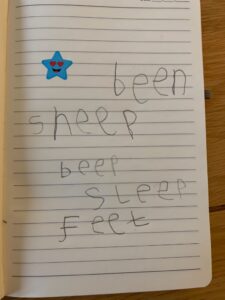 been
sheep
beep
sleep
feet